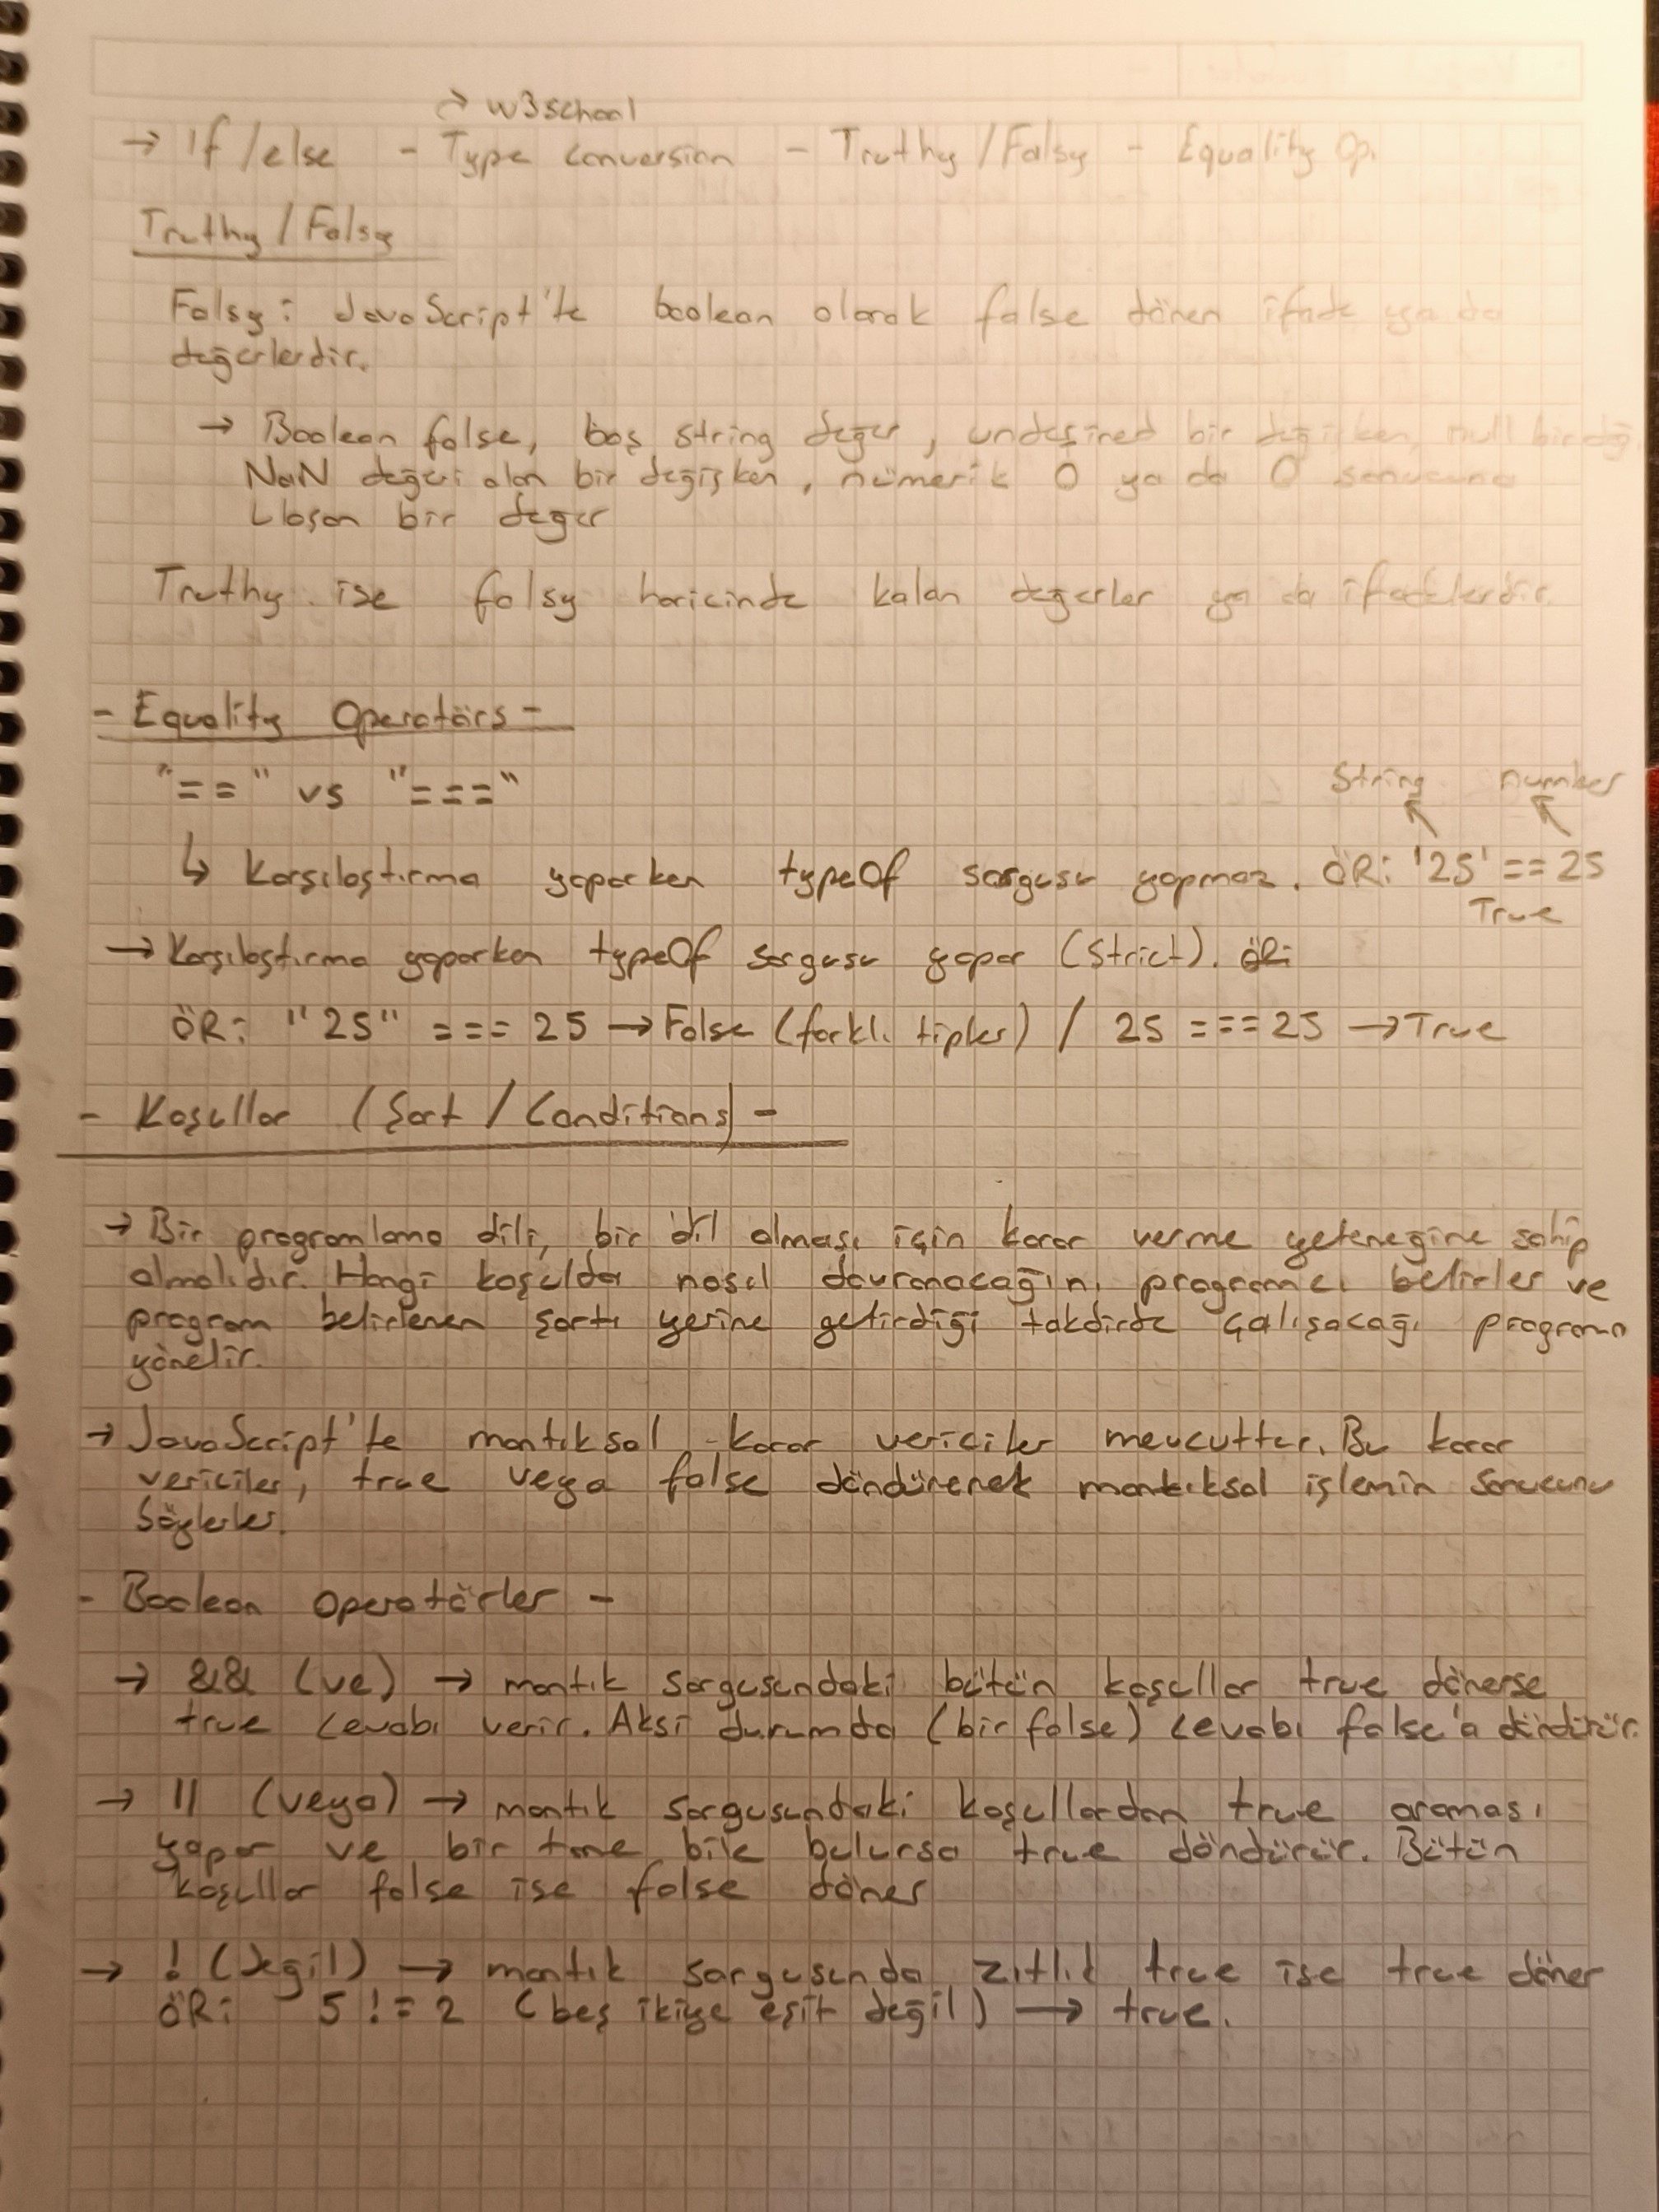 → w3school
→ If/else - Type conversion - Truthy/Falsy - Equality Op.
Truthy/Falsy
Falsy: JavaScript'te boolean olarak false dönen ifade ya da
değerlerdir.
→ Boolean false, boş string değer, undefined bir değişken, null bir değ.
NaN değeri alan bir değişken, nümerik 0 ya da 0 sonucuna
ulaşan bir değer
Truthy ise falsy haricinde kalan değerler ya da ifadelerdir.
- Equality Operatörs -
"==" vs "==="
String number
↳ Karşılaştırma yaparken typeOf sorgusu yapmaz. ÖR: '25' == 25
True
→ Karşılaştırma yaparken typeOf sorgusu yapar (Strict).
ÖR: "25" === 25 → False (farklı tipler) / 25 === 25 → True
- Koşullar (Şart / Conditions) -
→ Bir programlama dili, bir dil olması için karar verme yeteneğine sahip
olmalıdır. Hangi koşulda nasıl davranacağını programcı belirler ve
program belirlenen şartı yerine getirdiği takdirde çalışacağı programa
yönelir.
→ JavaScript'te mantıksal karar vericiler mevcuttur. Bu karar
vericiler, true veya false döndürerek mantıksal işlemin sonucunu
söylerler.
- Boolean Operatörler -
→ && (ve) → mantık sorgusundaki bütün koşullar true dönerse
true cevabı verir. Aksi durumda (bir false) cevabı false'a döndürür.
→ || (veya) → mantık sorgusundaki koşullardan true araması
yapar ve bir tane bile bulursa true döndürür. Bütün
koşullar false ise false döner
→ ! (değil) → mantık sorgusunda zıtlık true ise true döner
ÖR: 5 != 2 (beş ikiye eşit değil) → true.